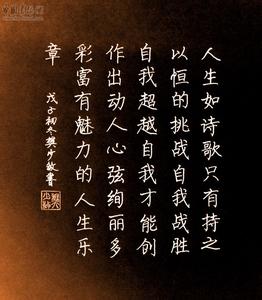 人生如诗歌只有持之
以恒的挑战自我战胜
自我超越自我才能创
作出动人心弦绚丽多
彩富有魅力的人生乐
章
戊子初冬樊少敏书